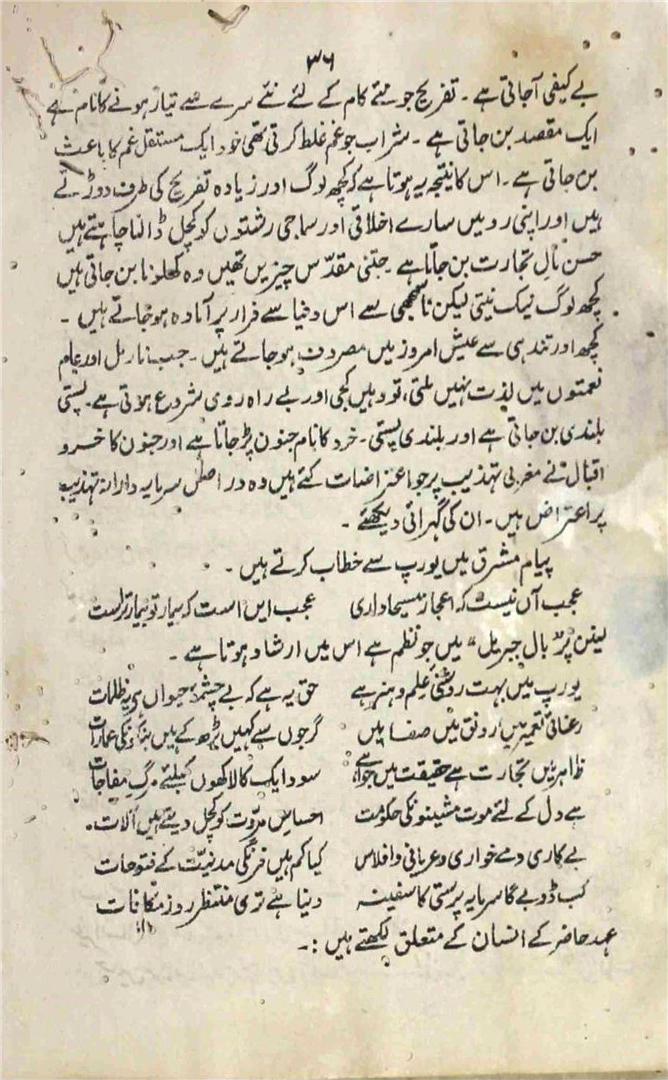 ۳۶
بے کیفی آجاتی ہے۔ تفریح جو نئے کام کے لئے نئے سرے سے تیار ہونے کا نام ہے
ایک مقصد بن جاتی ہے۔ شراب جو غم غلط کرتی تھی خود ایک مستقل غم کا باعث
بن جاتی ہے۔ اس کا نتیجہ یہ ہوتا ہے کہ کچھ لوگ اور زیادہ تفریح کی طرف دوڑتے
ہیں اور اپنی رو میں سارے اخلاقی اور سماجی رشتوں کو کچل ڈالنا چاہتے ہیں
حسن مال تجارت بن جاتا ہے۔ جتنی مقدّس چیزیں تھیں وہ کھلونا بن جاتی ہیں
کچھ لوگ نیک نیتی لیکن ناسمجھی سے اس دنیا سے فرار پر آمادہ ہوجاتے ہیں۔
کچھ اور تندہی سے عیش امروز میں مصروف ہوجاتے ہیں۔ جب نارمل اور عام
نعمتوں میں لذت نہیں ملتی، تو وہیں کجی اور بے راہ روی شروع ہوتی ہے۔ پستی
بلندی بن جاتی ہے اور بلندی پستی۔ خرد کا نام جنون پڑجاتا ہے اور جنون کا خرد
اقبال نے مغربی تہذیب پر جو اعتراضات کئے ہیں وہ دراصل سرمایہ دارانہ تہذیب
پر اعتراض ہیں۔ ان کی گہرائی دیکھئے۔
پیام مشرق میں یورپ سے خطاب کرتے ہیں۔
عجب آں نیست کہ اعجاز مسیحا داری عجب ایں است کہ بیمار تو بیمار تراست
لینن پر "بال جبریل" میں جو نظم ہے اس میں ارشاد ہوتا ہے۔
یورپ میں بہت روشنئ علم و ہنر ہے حق یہ ہے کہ بے چشمۂ حیواں ہے یہ ظلمات
رعنائی تعمیر میں رونق میں صفا میں گرجوں سے کہیں بڑھ کے ہیں بنکوں کی عمارات
ظاہر میں تجارت ہے حقیقت میں جوا ہے سود ایک کا لاکھوں کیلئے مرگ مفاجات
ہے دل کے لئے موت مشینوں کی حکومت احساس مروّت کو کچل دیتے ہیں آلات۔
بے کاری و مے خواری و عریانی و افلاس کیا کم ہیں فرنگی مدنیّت کے فتوحات
کب ڈوبے گا سرمایہ پرستی کا سفینہ دنیا ہے تری منتظر روز مکافات
عہد حاضر کے انسان کے متعلق لکھتے ہیں:۔